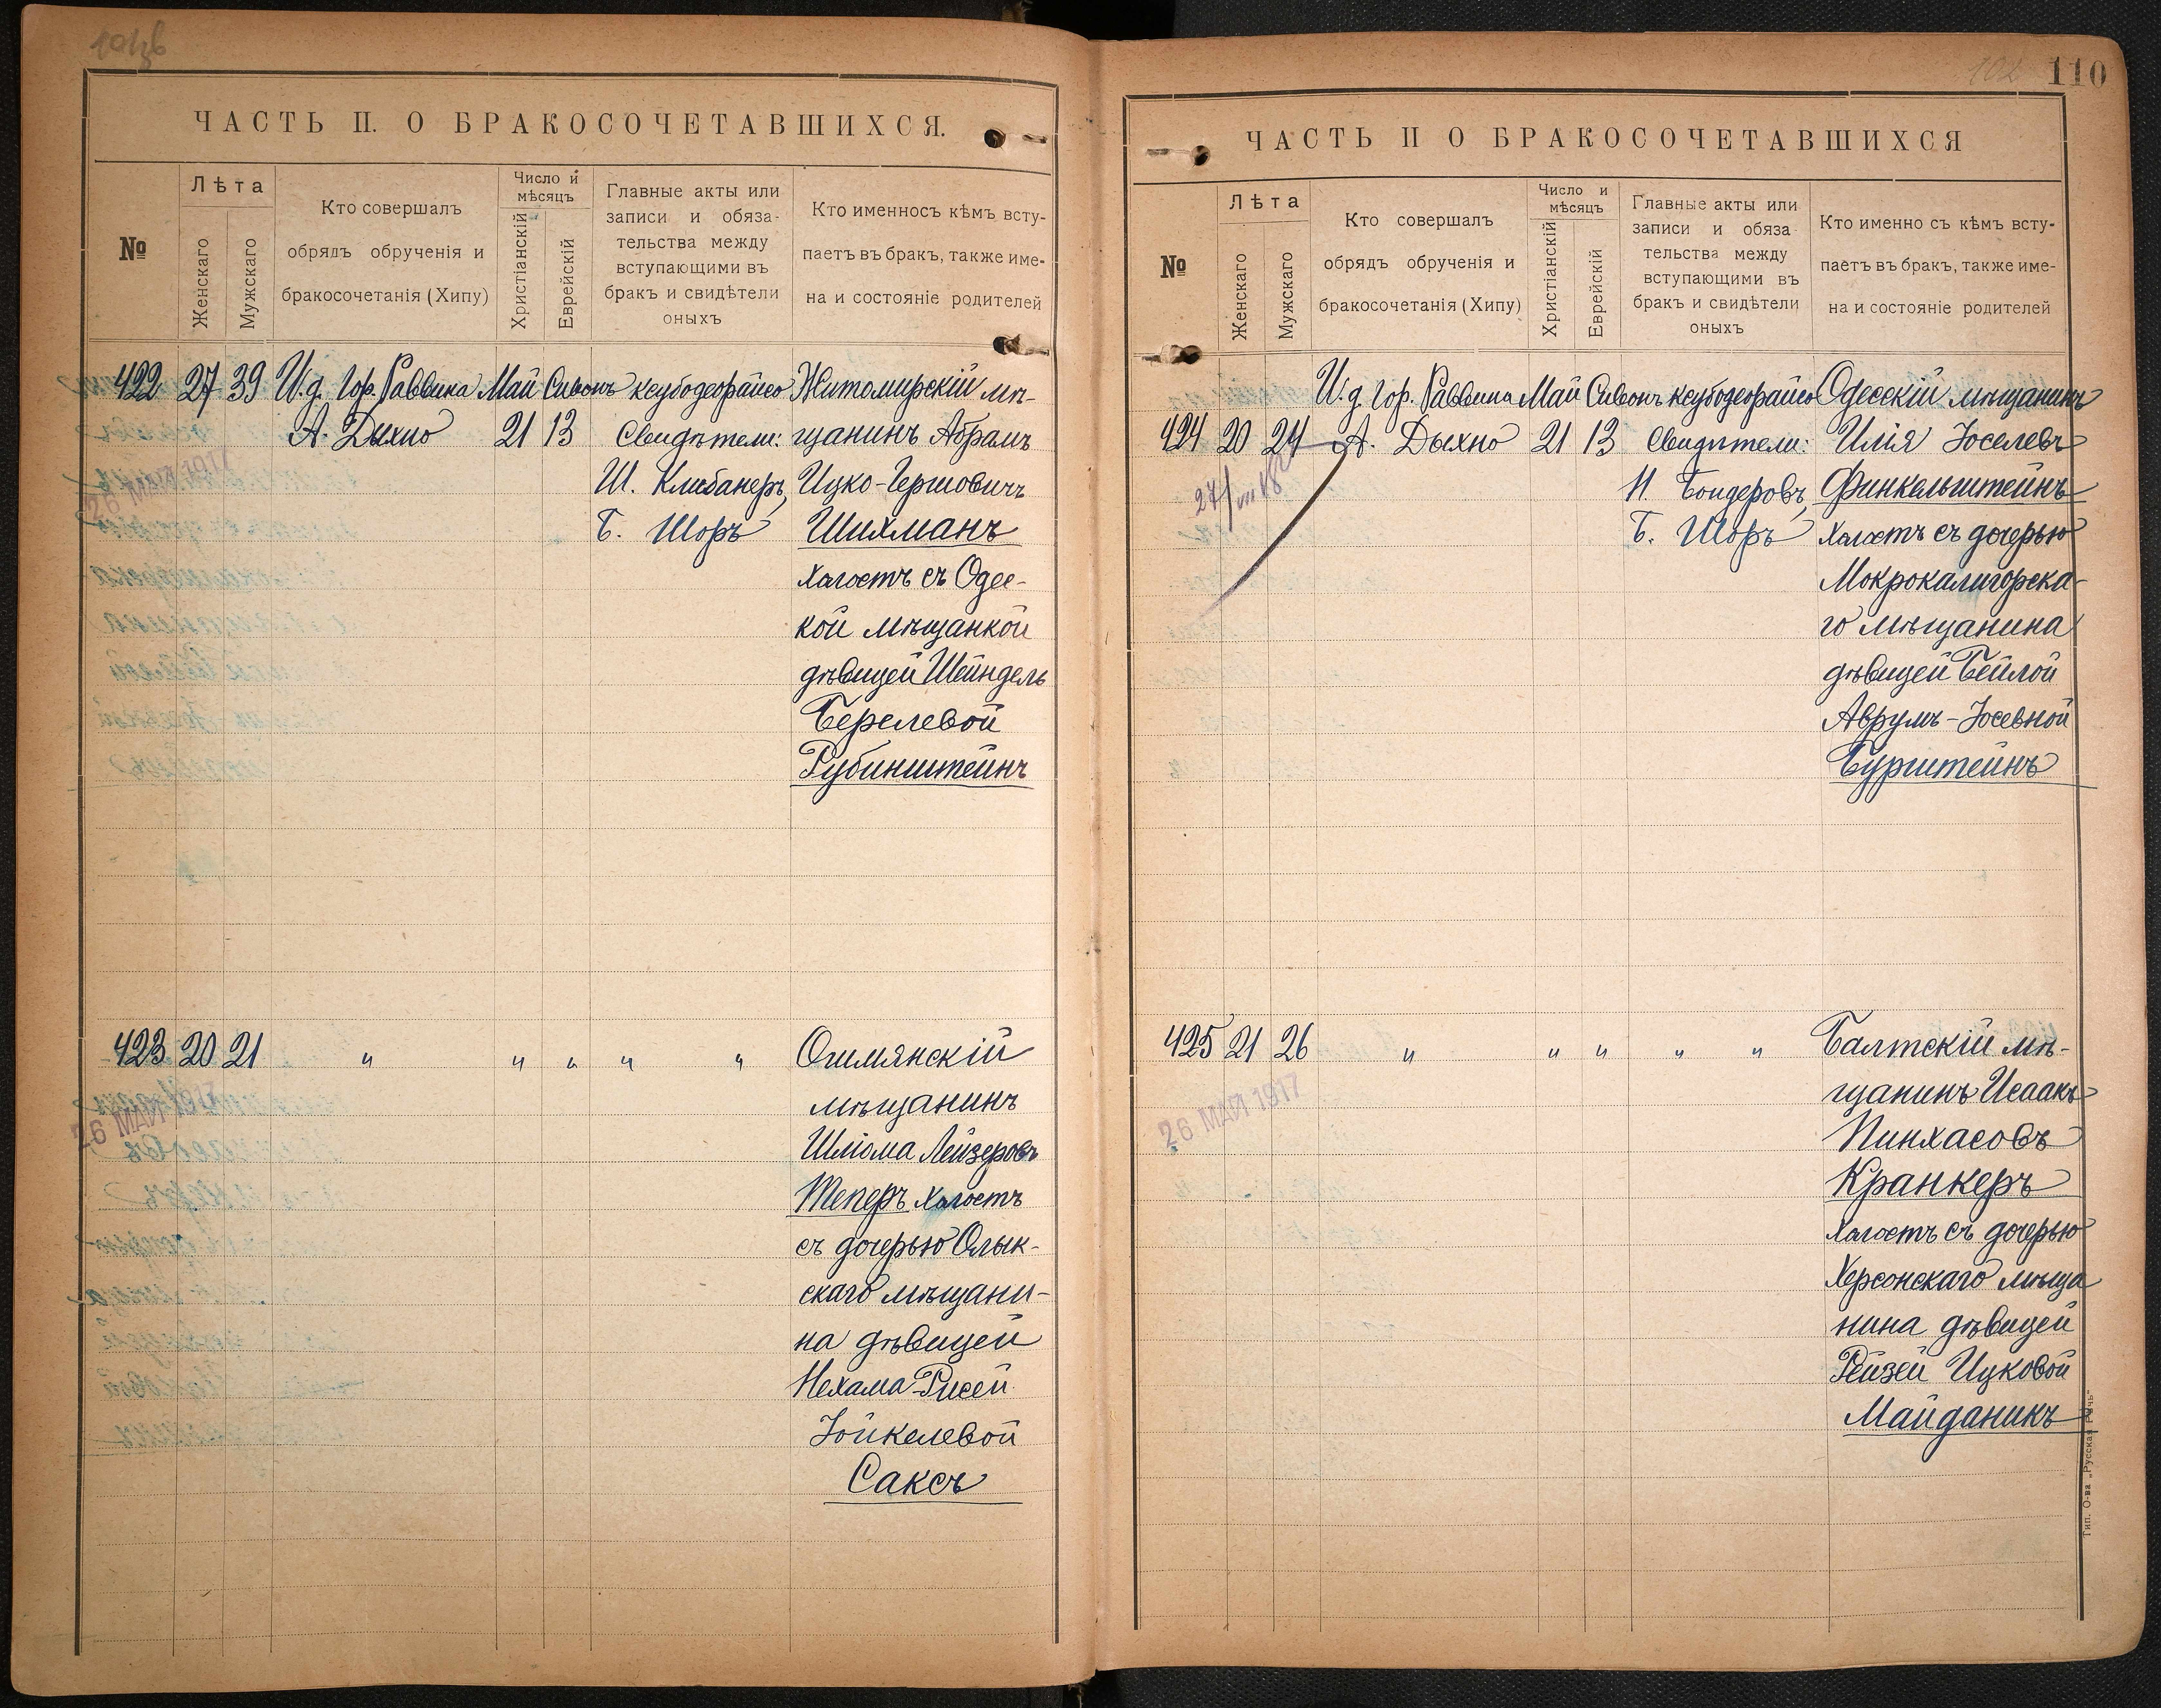 ЧАСТЬ II. О БРАКОСОЧЕТАВШИХСЯ.
№
Лѣта
Женскаго
Мужскаго
Кто совершалъ
обрядъ обрученія и
бракосочетанія (Хипу)
Число и
мѣсяцъ
Христіанскій
Еврейскій
Главные акты или
записи и обяза-
тельства между
вступающими въ
бракъ и свидѣтели
оныхъ
Кто именносъ кѣмъ всту-
паетъ въ бракъ, также име-
на и состояніе родителей
422 27 39 И.д. Гор. Раввина Май Сивонъ ксубодеорайсо Житомирскій мѣ-
А. Дыхно 21 13 Свидѣтели: щанинъ Абрамъ
26 МАЯ 1917
Ш. Клибанеръ, Ицко-Гершовичъ
Б. Шоръ Шихманъ
холостъ съ Одес-
кой мѣщанкой
дѣвицей Шейндель
Берелевой
Рубинштейнъ
423 20 21 " " " " " Ошмянскій
26 МАЯ 1917
мѣщанинъ
Шлiома Лейзеровъ
Теперъ холостъ
съ дочерью Олык-
скаго мѣщани-
на дѣвицей
Нехама-Рисей
Іойкелевой
Саксъ
110
ЧАСТЬ II О БРАКОСОЧЕТАВШИХСЯ
№
Лѣта
Женскаго
Мужскаго
Кто совершалъ
обрядъ обрученія и
бракосочетанія (Хипу)
Число и
мѣсяцъ
Христіанскій
Еврейскій
Главные акты или
записи и обяза
тельства между
вступающими въ
бракъ и свидѣтели
оныхъ
Кто именно съ кѣмъ всту-
паетъ въ бракъ, также име-
на и состояніе родителей
И.д. Гор. Раввина Май Сивонъ ксубодеорайсо Одесскій мѣщанинъ
424 20 24 А. Дыхно 21 13 Свидѣтели: Илія Іоселевъ
27/VII 18
Н. Бондеровъ, Финкельштейнъ
Б. Шоръ холостъ съ дочерью
Мокрокалигорска-
го мѣщанина
дѣвицей Бейлой
Аврумъ-Іосевной
Бурштейнъ
425 21 26 " " " " " Балтскій мѣ-
26 МАЯ 1917
щанинъ Исаакъ
Пинхасовъ
Кранкеръ
холостъ съ дочерью
Херсонскаго мѣща
нина дѣвицей
Рейзей Ицковой
Майданикъ
Тип. О-ва „Русская Рѣчь"